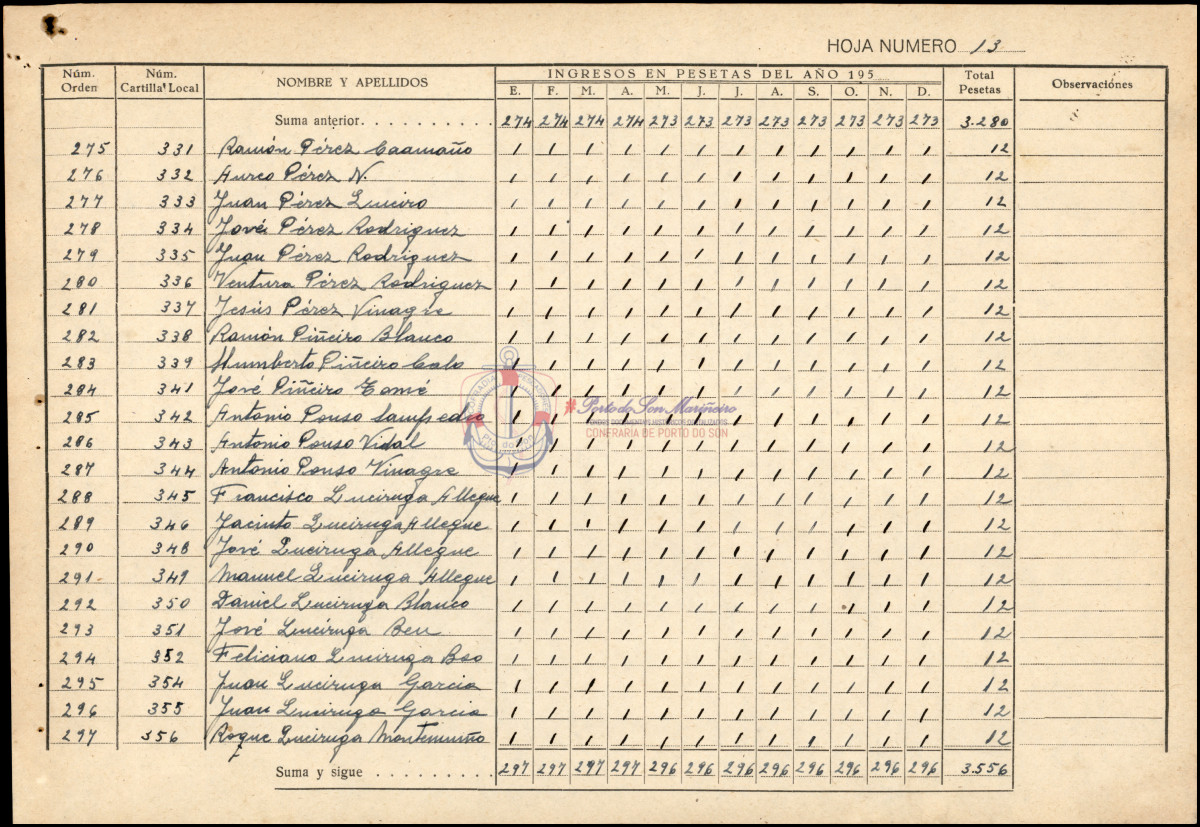 HOJA NUMERO 13
Núm. Orden Núm. Cartilla Local NOMBRE Y APELLIDOS INGRESOS EN PESETAS DEL AÑO 195 Total Pesetas Observaciones
E. F. M. A. M. J. J. A. S. O. N. D.
Suma anterior 274 274 274 274 273 273 273 273 273 273 273 273 3.280
275 331 Ramón Pérez Caamaño 1 1 1 1 1 1 1 1 1 1 1 1 12
276 332 Aureo Pérez N. 1 1 1 1 1 1 1 1 1 1 1 1 12
277 333 Juan Pérez Luciro 1 1 1 1 1 1 1 1 1 1 1 1 12
278 334 José Pérez Rodriguez 1 1 1 1 1 1 1 1 1 1 1 1 12
279 335 Juan Pérez Rodriguez 1 1 1 1 1 1 1 1 1 1 1 1 12
280 336 Ventura Pérez Rodriguez 1 1 1 1 1 1 1 1 1 1 1 1 12
281 337 Jesús Pérez Vinagre 1 1 1 1 1 1 1 1 1 1 1 1 12
282 338 Ramón Piñeiro Blanco 1 1 1 1 1 1 1 1 1 1 1 1 12
283 339 Humberto Piñeiro Calo 1 1 1 1 1 1 1 1 1 1 1 1 12
284 341 José Piñeiro Tomé 1 1 1 1 1 1 1 1 1 1 1 1 12
285 342 Antonio Pouso Sampedro 1 1 1 1 1 1 1 1 1 1 1 1 12
286 343 Antonio Pouso Vidal 1 1 1 1 1 1 1 1 1 1 1 1 12
287 344 Antonio Pouso Vinagre 1 1 1 1 1 1 1 1 1 1 1 1 12
288 345 Francisco Luciruga Allegue 1 1 1 1 1 1 1 1 1 1 1 1 12
289 346 Jacinto Luciruga Allegue 1 1 1 1 1 1 1 1 1 1 1 1 12
290 348 José Luciruga Allegue 1 1 1 1 1 1 1 1 1 1 1 1 12
291 349 Manuel Luciruga Allegue 1 1 1 1 1 1 1 1 1 1 1 1 12
292 350 Daniel Luciruga Blanco 1 1 1 1 1 1 1 1 1 1 1 1 12
293 351 José Luciruga Ben 1 1 1 1 1 1 1 1 1 1 1 1 12
294 352 Feliciano Luciruga Bso 1 1 1 1 1 1 1 1 1 1 1 1 12
295 354 Juan Luciruga Garcia 1 1 1 1 1 1 1 1 1 1 1 1 12
296 355 Juan Luciruga Garcia 1 1 1 1 1 1 1 1 1 1 1 1 12
297 356 Roque Luciruga Montemuiño 1 1 1 1 1 1 1 1 1 1 1 1 12
Suma y sigue 297 297 297 297 296 296 296 296 296 296 296 296 3.556
#Porto do Son Mariñeiro
CONFRARIA DE PORTO DO SON